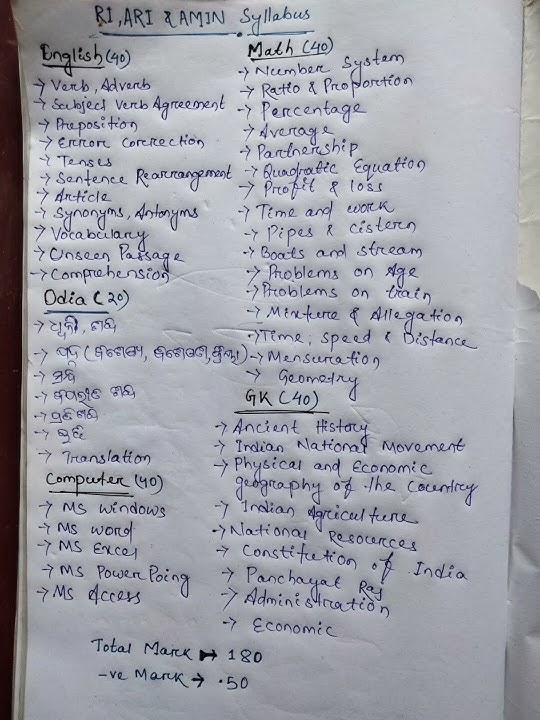 RI, ARI & AMIN Syllabus
English (40)
→ Verb, Adverb
→ Subject Verb Agreement
→ Preposition
→ Error correction
→ Tenses
→ Sentence Rearrangement
→ Article
→ Synonyms, Antonyms
→ Vocabulary
→ Unseen Passage
→ Comprehension
Odia (20)
→ ଧ୍ୱନି, ଶବ୍ଦ
→ ପଦ (ବିଶେଷ୍ୟ, ବିଶେଷଣ, କ୍ରିୟା)
→ ସନ୍ଧି
→ ବିପରୀତ ଶବ୍ଦ
→
→
→ Translation
Computer (40)
→ MS Windows
→ MS Word
→ MS Excel
→ MS PowerPoing
→ MS Access
Math (40)
→ Number System
→ Ratio & Proportion
→ Percentage
→ Average
→ Partnership
→ Quadratic Equation
→ Profit & loss
→ Time and work
→ Pipes & cistern
→ Boats and stream
→ Problems on Age
→ Problems on train
→ Mixture & Allegation
→ Time, Speed & Distance
→ Mensuration
→ Geometry
GK (40)
→ Ancient History
→ Indian National Movement
→ Physical and Economic
geography of the Country
→ Indian Agriculture
→ National Resources
→ Constitution of India
→ Panchayat Raj
→ Administration
→ Economic
Total Mark → 180
-ve Mark → .50